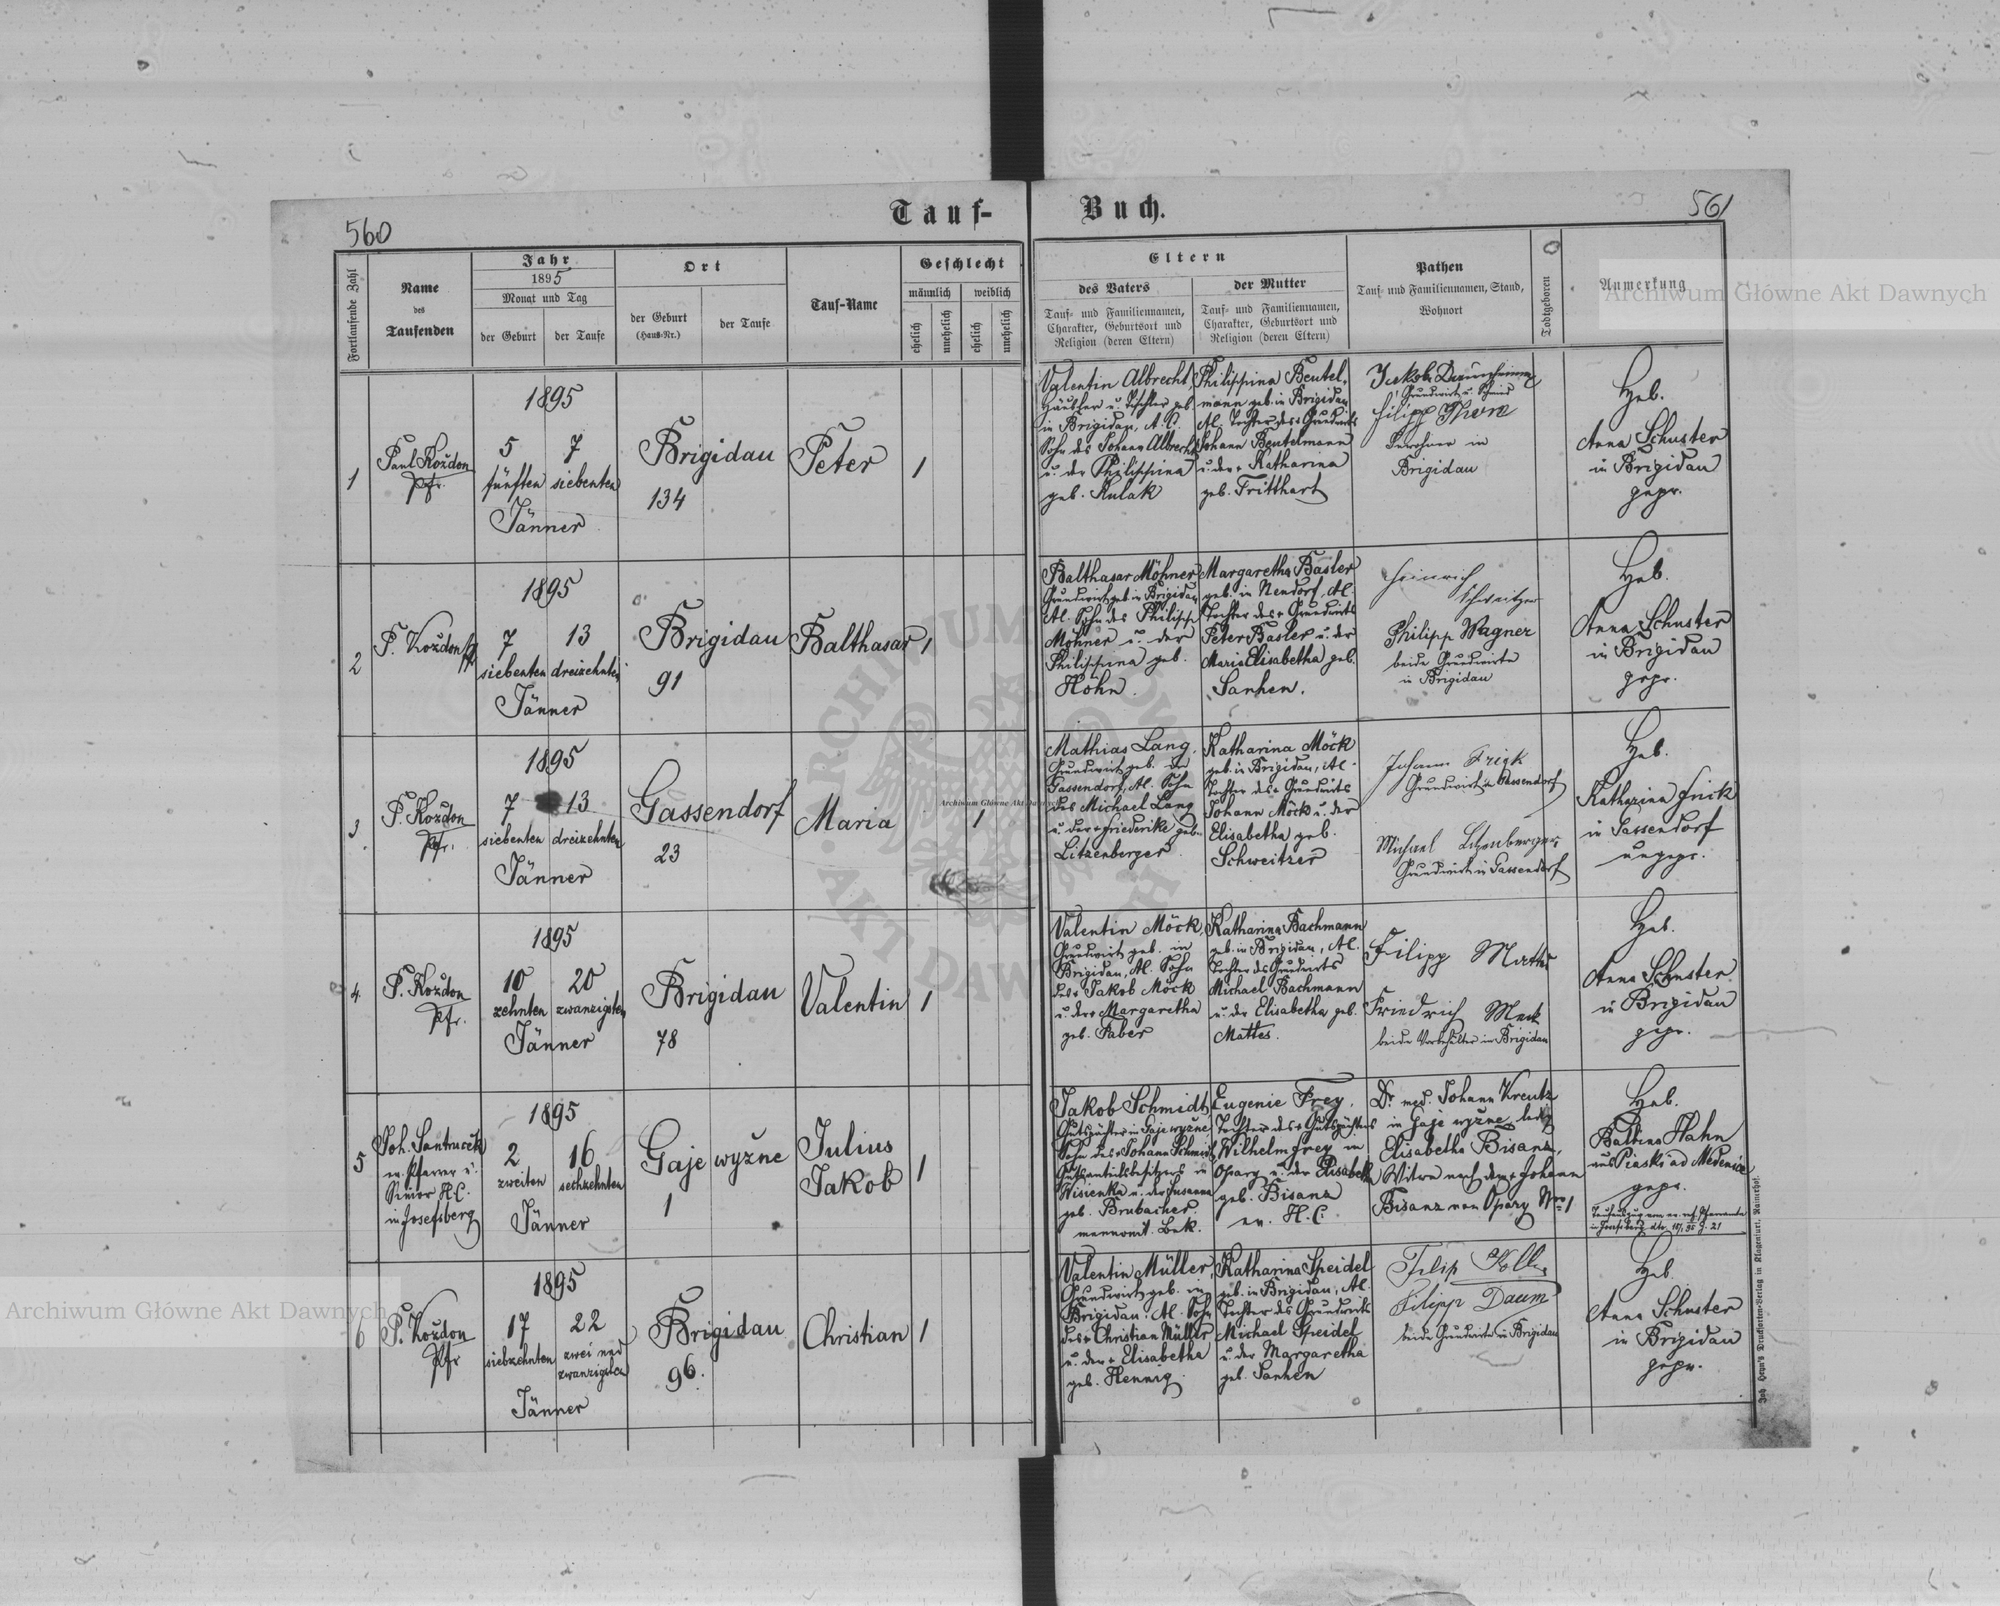 Tauf-
Buch.
560
561
Fortlaufende Zahl
Name
des
Taufenden
Jahr
1895
Monat und Tag
der Geburt
der Taufe
Ort
der Geburt
(Haus-Nr.)
der Taufe
Tauf-Name
Geschlecht
männlich
weiblich
ehelich
unehelich
ehelich
unehelich
Eltern
des Vaters
Tauf- und Familiennamen,
Charakter, Geburtsort und
Religion (deren Eltern)
der Mutter
Tauf- und Familiennamen,
Charakter, Geburtsort und
Religion (deren Eltern)
Pathen
Tauf- und Familiennamen, Stand,
Wohnort
Todtgeboren
Anmerkung
1
Paul Kozdon
Pfr.
1895
5 7
fünften siebenten
Jänner
Brigidau
134
Peter
1
Valentin Albrecht,
Häusler u. Tischler geb.
in Brigidau, A.C.
Sohn des Johann Albrecht
u. der Philippina
geb. Kulak
Philippina Beutel-
mann geb. in Brigidau
AC. Tochter des + Grundwirts
Johann Beutelmann
u. der + Katharina
geb. Tritthart
Jakob
Grundwirt u. Schmied
Filipp Thorn
Bewohner in
Brigidau
Heb.
Anna Schuster
in Brigidau
gepr.
2
P. Kozdon Pfr
1895
7 13
siebenten dreizehnten
Jänner
Brigidau
91
Balthasar
1
Balthasar Möhner
Grundwirt geb. in Brigidau
AC. Sohn des Philipp
Möhner u. der
Philippina geb.
Hohn.
Margaretha Basler
geb. in Neudorf, AC.
Tochter des + Grundwirts
Peter Basler u. der
Maria Elisabetha geb.
Sanhen.
Heinrich
Schweitzer
Philipp Wagner
beide Grundwirte
in Brigidau
Heb.
Anna Schuster
in Brigidau
gepr.
3
P. Kozdon
Pfr.
1895
7 13
siebenten dreizehnten
Jänner
Gassendorf
23
Maria
1
Mathias Lang,
Grundwirt geb. in
Gassendorf, AC. Sohn
des Michael Lang
u. der + Friederike geb.
Litzenberger
Katharina Möck
geb. in Brigidau, AC.
Tochter des + Grundwirts
Johann Möck u. der
Elisabetha geb.
Schweitzer
Johann Frick
Grundwirt in Gassendorf
Michael Litzenberger
Grundwirt in Gassendorf
Heb.
Katharina Frick
in Gassendorf
ungepr.
4
P. Kozdon
Pfr.
1895
10 20
zehnten zwanzigsten
Jänner
Brigidau
78
Valentin
1
Valentin Möck,
Grundwirt geb. in
Brigidau, AC. Sohn
des + Jakob Möck
u. der + Margaretha
geb. Faber
Katharina Bachmann
geb. in Brigidau, AC.
Tochter des Grundwirts
Michael Bachmann
u. der Elisabetha geb.
Mattes.
Filipp Mattes
Friedrich Meck
beide Vorbehälter in Brigidau
Heb.
Anna Schuster
in Brigidau
gepr.
5
Joh. Santrucek
ev. Pfarrer u.
Senior H.C.
in Josefsberg
1895
2 16
zweiten sechzehnten
Jänner
Gaje wyżne
1
Julius
Jakob
1
Jakob Schmidt,
Gutspächter in Gaje wyżne
Sohn des + Johann Schmidt
Gutsantheilsbesitzers in
Wisienka u. der Susanna
geb. Brubacher
mennonit. Bek.
Eugenie Frey,
Tochter des + Gutspächters
Wilhelm Frey in
Opary u. der Elisabeth
geb. Bisanz
ev. H.C.
Dr. med. Johann Kreutz
in Gaje wyżne, ledig
Elisabetha Bisanz,
Witwe nach dem + Johann
Bisanz von Opary Nro 1
Heb.
Balbina Hahn
aus Piaski ad Medenice
gepr.
6
P. Kozdon
Pfr
1895
17 22
siebzehnten zwei und
zwanzigsten
Jänner
Brigidau
96.
Christian
1
Valentin Müller,
Grundwirt geb. in
Brigidau, AC. Sohn
des + Christian Müller
u. der + Elisabetha
geb. Hennig.
Katharina Speidel
geb. in Brigidau, AC.
Tochter des Grundwirts
Michael Speidel
u. der Margaretha
geb. Sanhen
Filip Koller
Filipp Daum
beide Grundwirte in Brigidau
Heb.
Anna Schuster
in Brigidau
gepr.
Joh. Heyn's Drucksorten-Verlag in Klagenfurt, Rainerhof.
Archiwum Główne Akt Dawnych
Archiwum Główne Akt Dawnych
Archiwum Główne Akt Dawnych
ARCHIWUM GŁÓWNE
AKT DAWNYCH